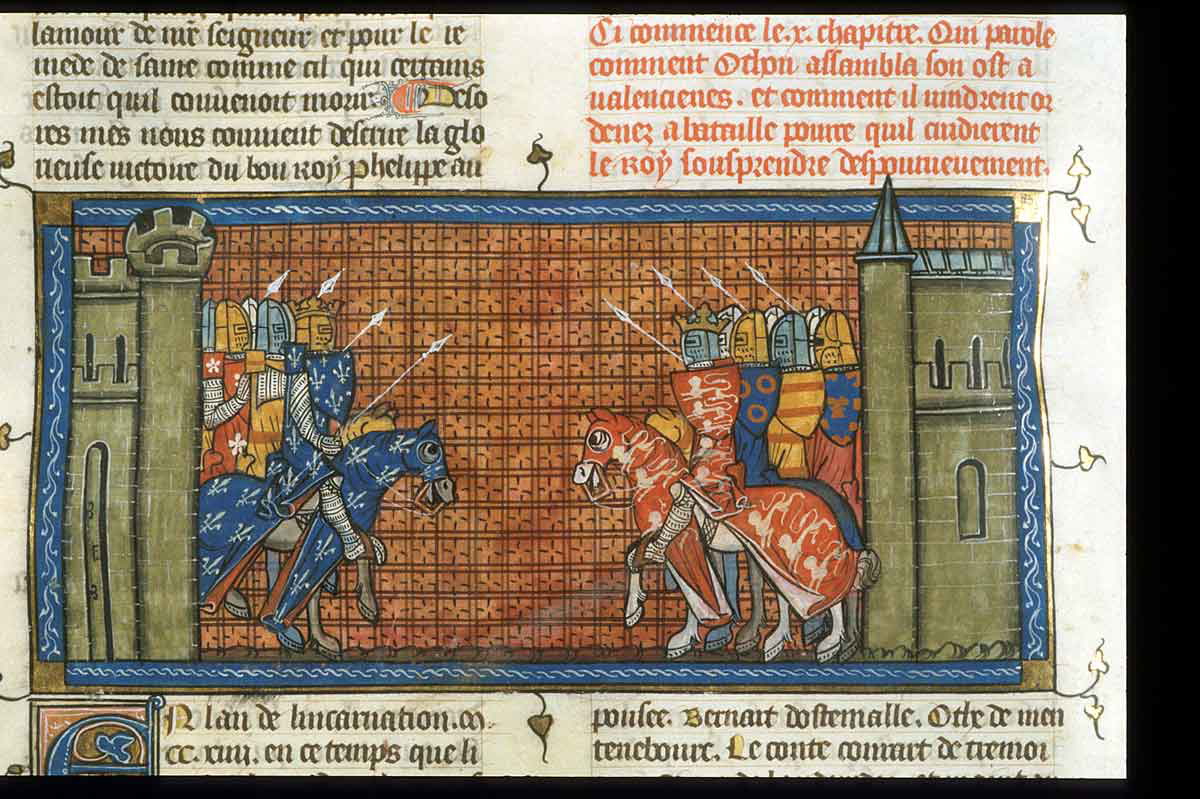 lamour de nr̃e seigneur et pour le re
mede de same comme cil qui certains
estoit quil couuenoit morir. Deso
res mes nous couuient descrire la glo
rieuse uictoire du bon roy phelippe au
Ci commence le .x. chapitre. Qui parole
comment Othon assambla son ost a
ualencienes. et comment il uindrent or
denez a bataille pource quil cuidierent
le Roy sousprendre despourueuement.
En lan de lincarnation .m.
cc.xiiii. en ce temps que li
ponsee. Bernart dostemalle. Othe de men
teneboure. Le conte conrart de tremoi